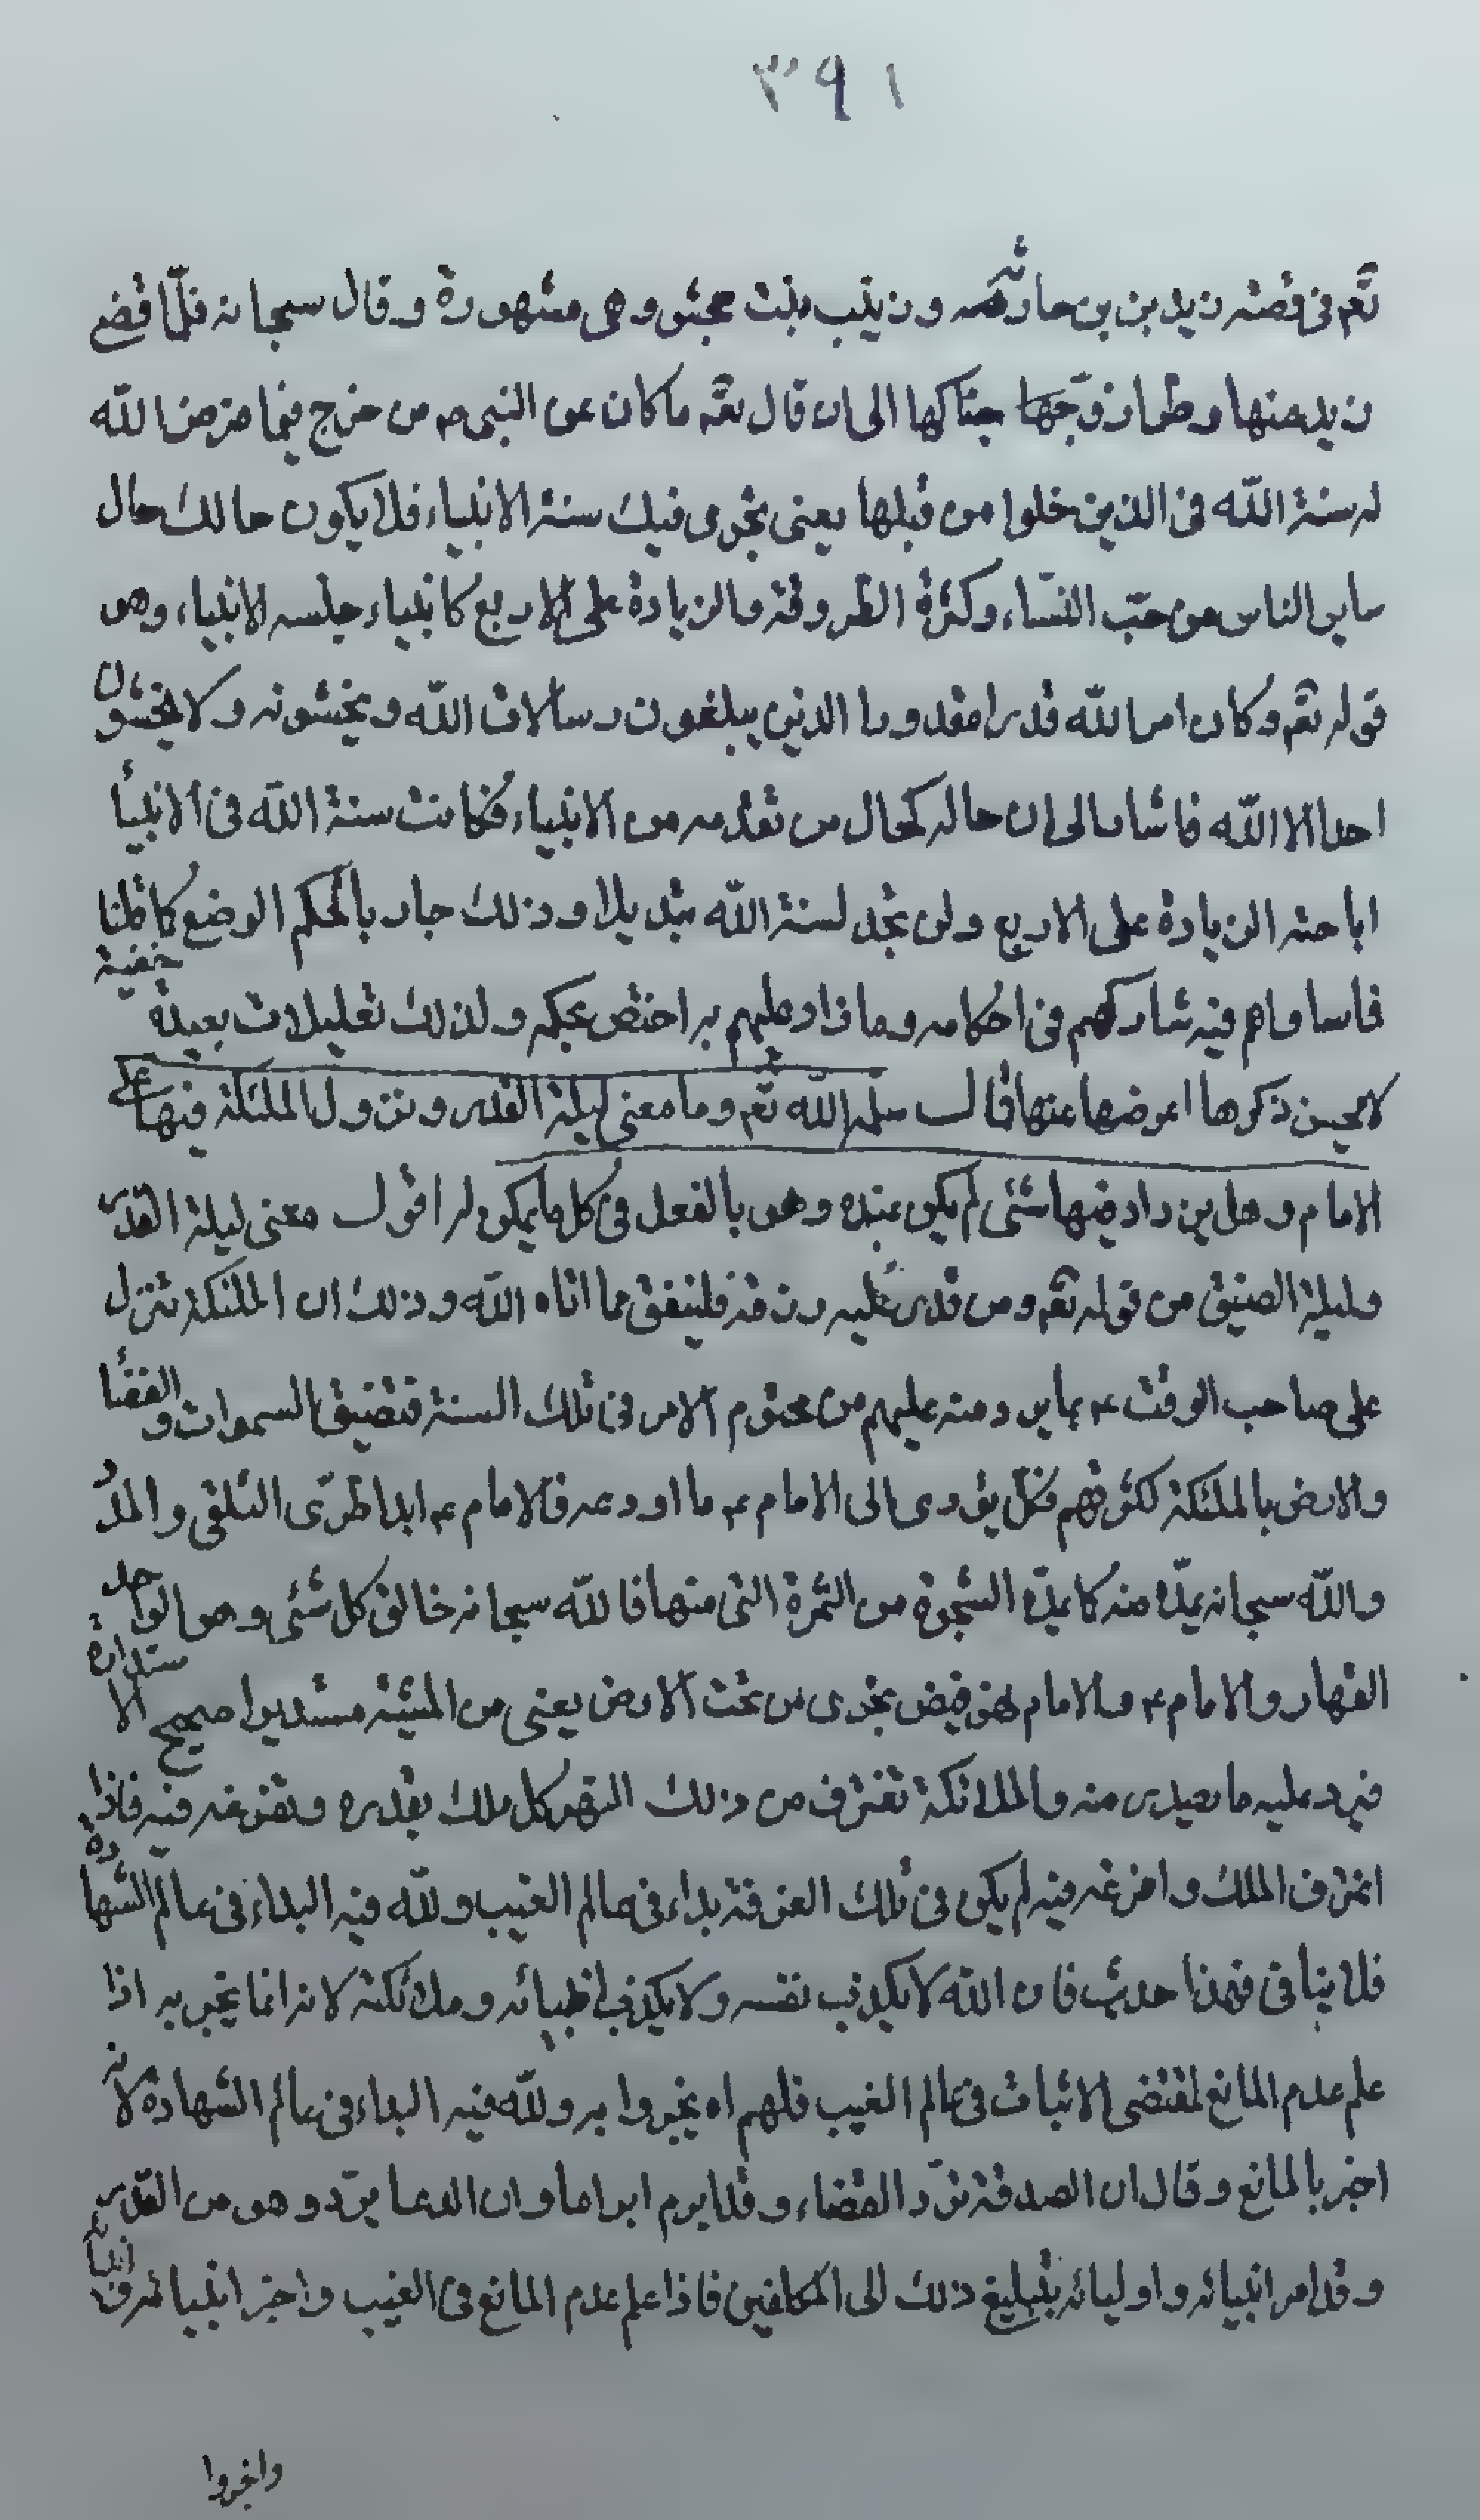 ٣٩١
تعّم فى قصّة زيد بن بن حارثة وزينب بنت جحش وهى مشهورة وقال سبحانه فلمّا قضى
زيد منها وطرا زوّجها جناكها الى ان قال تعّم ما كان على النبى ص من حرج فيما فرض الله
له سنة الله فى الذين خلوا من قبلها يعنى تجرى فيك سنة الانبياء فلا يكون حالك حال
ساير الناس من حبّ النّساء وكثرة الطروقة والزيادة على الاربع كانبياء جلسه الانبياء وهو
قوله تعّم وكان امر الله قدرا مقدورا الذين يبلغون رسالات الله ويخشونه ولا يخشون
احدا الا الله فاشار الى ان حاله كحال من تقدّمه من الانبياء فكانت سنة الله فى الانبيأ
اباحة الزيادة على الاربع ولن تجد لسنة الله تبديلا وذلك جار بالحكم الوضع كما قلنا
فما ساواهم فيه شاركهم فى احكامه وما زاد عليهم به اختص بحكمه ولذلك تعليلات بعيدة خفية
لا يحسن ذكرها اعرضنا عنها قال سلمه الله تعّم وما معنى ليلة القدر ونزول الملئكة فيها على
الامام وهل يزداد فيها شئى لم يكن عنده وهو بالفعل فى كل ما يمكن له اقول معنى ليلة القدر
وليلة الضيق من قوله تعّم ومن قدر عليه رزقه فلينفق مما اتاه الله وذلك ان الملئكة تتنزل
على صاحب الوقت ع بما يرد منه عليهم من محتوم الامر فى تلك السنة فتضيق السموات والفضأ
والارض بالملئكة لكثرتهم فكلّ يؤدى الى الامام ع ما اودعه فالامام ع ابدا طرىّ التلقى والمدد
والله سبحانه يمدّه منه كما يمدّ الشجرة من الثمرة التى منها فالله سبحانه خالق كل شئى وهو الواحد
القهار والامام ع والامام نهر فيض يجرى من تحت الارض يعنى من المشيّة مستديرا صحيح الاستدارة
فيرد عليه ما يصدر منه والملائكة تغترف من ذلك النهر كل ملك بقدره وتفرغه فيه فاذا
اغترف الملك وافرغه فيه لم يكن فى تلك الغرفة بداء فى عالم الغيب ولله فيه البداء فى عالم الشهادة
فلا ينافى فهذا حديث فان الله لا يكذب نفسه ولا يكذب انبيائه وملئكته لانه انما يخبر به اذا
علم عدم المانع لمقتضى الاثبات فى عالم الغيب فلهم ان يخبروا به ولله فيه البداء فى عالم الشهادة لانه
اخبر بالمانع وقال ان الصدقة تردّ القضاء وقد ابرم ابراما وان الدعا يردّ وهو من القدر
وقد امر انبيائه واوليائه بتبليغ ذلك الى المكلفين فاذا علم عدم المانع فى الغيب واخبر انبيائه
واخبروا